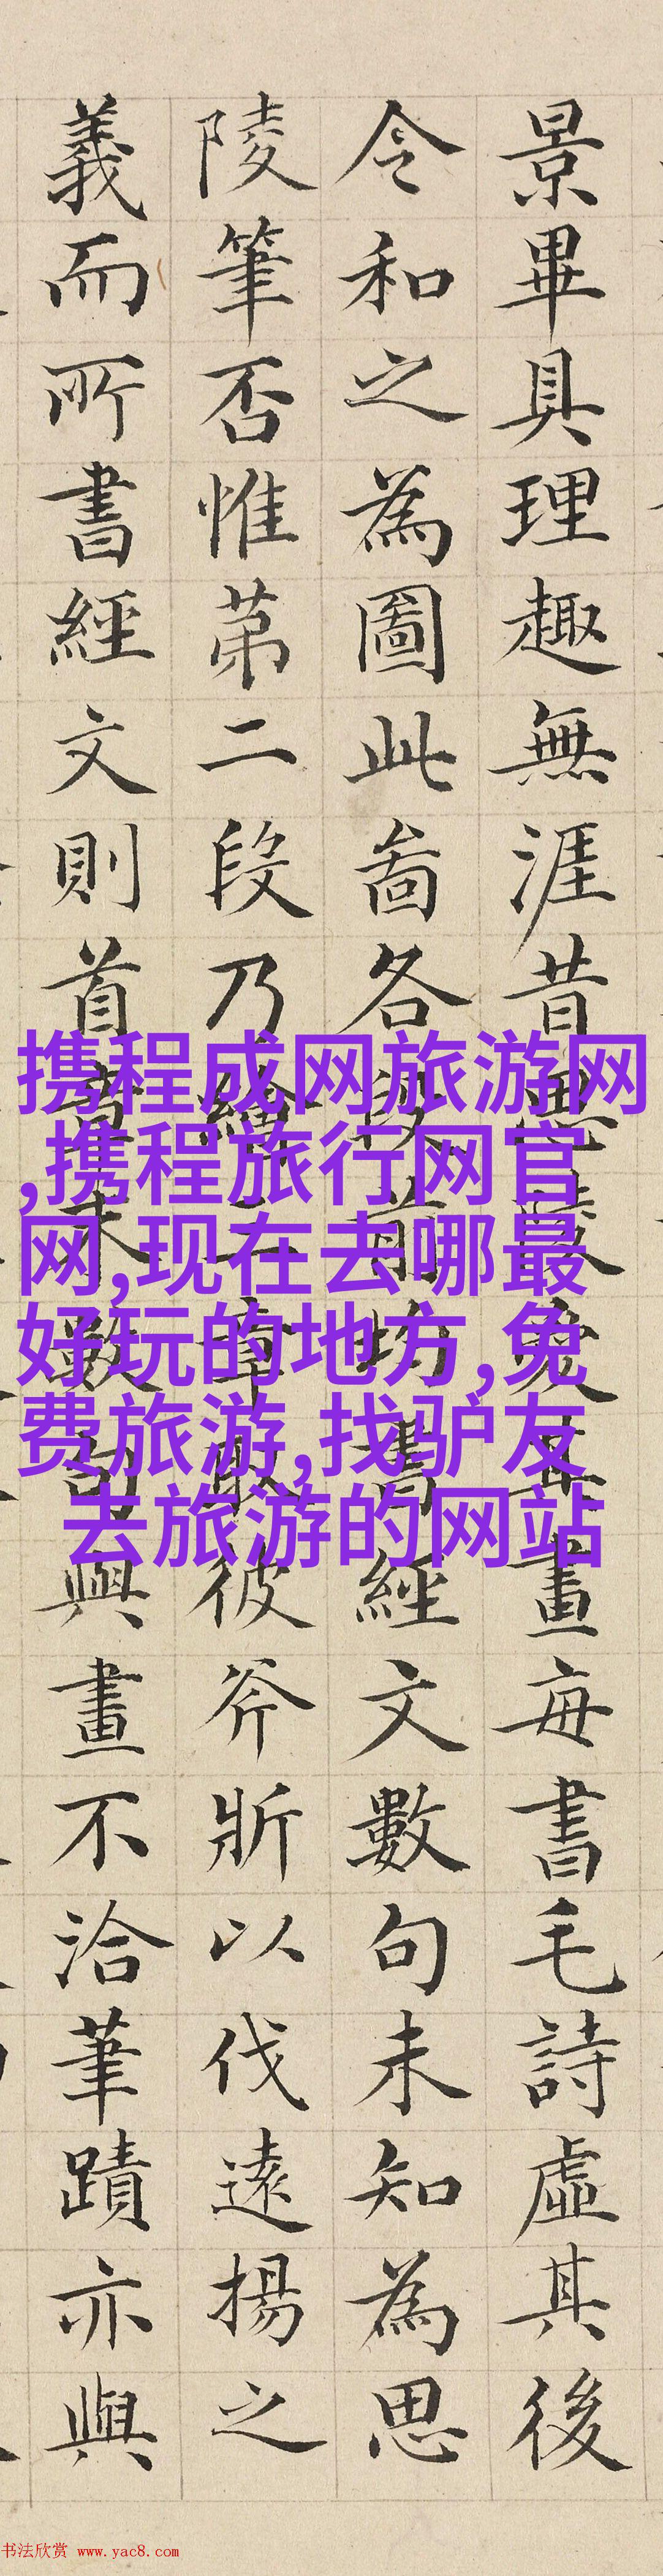 景畢具理趣無涯昔思陵愛其畫每書毛詩虛其後
令和之為圖此啚各段前均書經文數句未知為思
陵筆否惟苐二段乃繪二章取彼斧斨以伐遠揚之
義而所書經文則首章末數句與畫不洽筆蹟亦與
携程成网旅游网
,携程旅行网官
网,现在去哪最
好玩的地方,免
费旅游,找驴友
去旅游的网站
书法欣赏 www.yac8.com